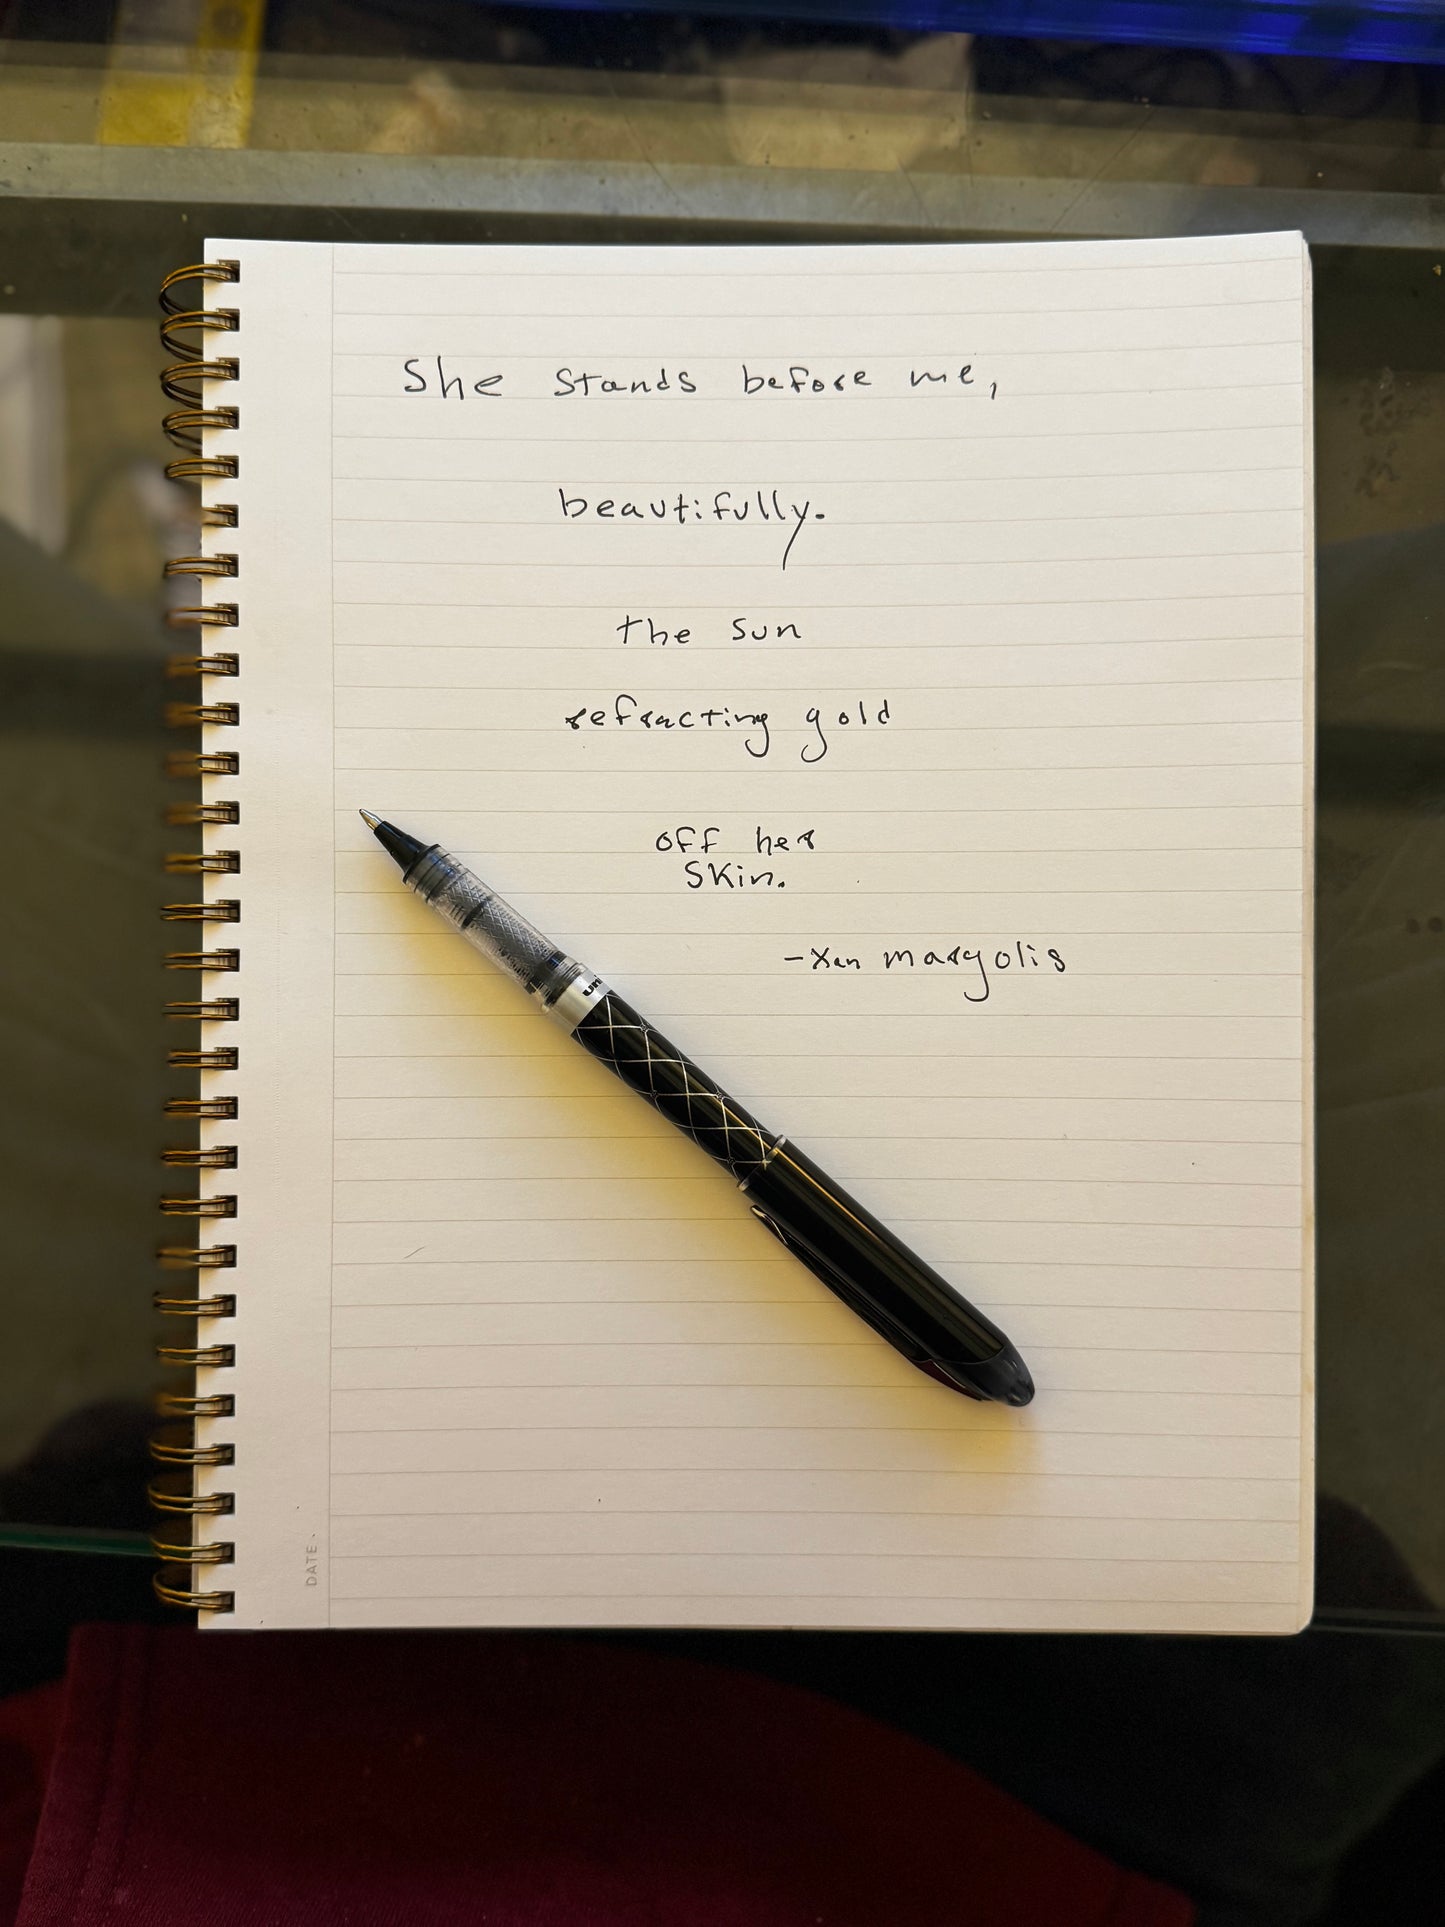 She stands before me,
beautifully.
the sun
refracting gold
off her
skin.
-Xan margolis
uni
DATE.